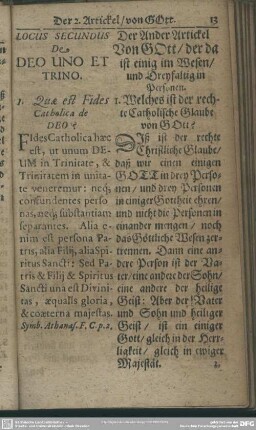 Der 2. Artickel/ von GOtt. 13
LOCUS SECUNDUS
De
DEO UNO ET
TRINO.
1. Quæ est Fides
Catholica de
DEO?
FIdes Catholica hæc
est, ut unum DE-
UM in Trinitate, &
Trinitatem in unita-
te veneremur: neq;
confundentes perso-
nas, neq; substantiam
separantes. Alia e-
nim est persona Pa-
tris, alia Filij, alia Spi-
ritus Sancti: Sed Pa-
tris & Filij & Spiritus
Sancti una est Divini-
tas, æqualis gloria,
& coæterna majestas.
Symb. Athanas. F. C. p. 2.
Der Ander Artickel
Von GOtt/ der da
ist einig im Wesen/
und Dreyfaltig in
Personen.
1. Welches ist der rech-
te Catholische Glaube
von GOtt?
DIß ist der rechte
Christliche Glaube/
daß wir einen einigen
GOTT in drey Perso-
nen/ und drey Personen
in einiger Gottheit ehren/
und nicht die Personen in
einander mengen/ noch
das Göttliche Wesen zer-
trennen. Dann eine an-
dere Person ist der Va-
ter/ eine andere der Sohn/
eine andere der heilige
Geist: Aber der Vater
und Sohn und heiliger
Geist/ ist ein einiger
Gott/ gleich in der Herr-
ligkeit/ gleich in ewiger
Majestät.
2.